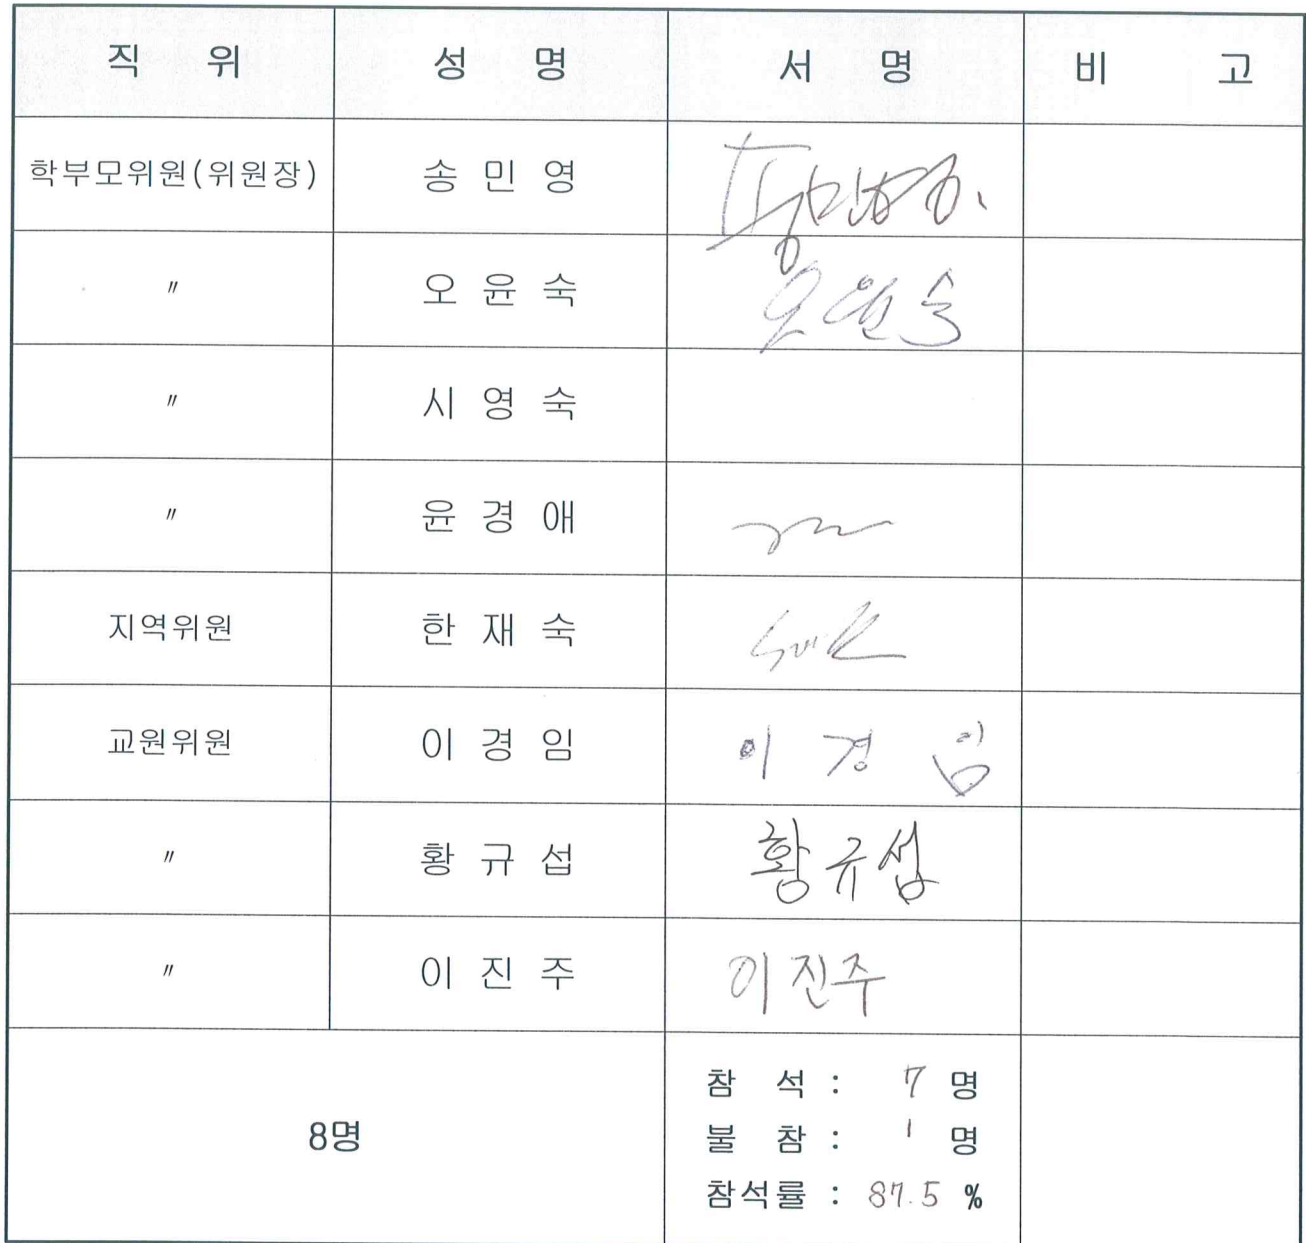 직 위 성 명 서 명 비 고
학부모위원(위원장) 송 민 영 송민영
〃 오 윤 숙 오윤숙
〃 시 영 숙
〃 윤 경 애
지역위원 한 재 숙
교원위원 이 경 임 이 경 임
〃 황 규 섭 황규섭
〃 이 진 주 이진주
8명
참 석 : 7 명
불 참 : 1 명
참석률 : 87.5 %